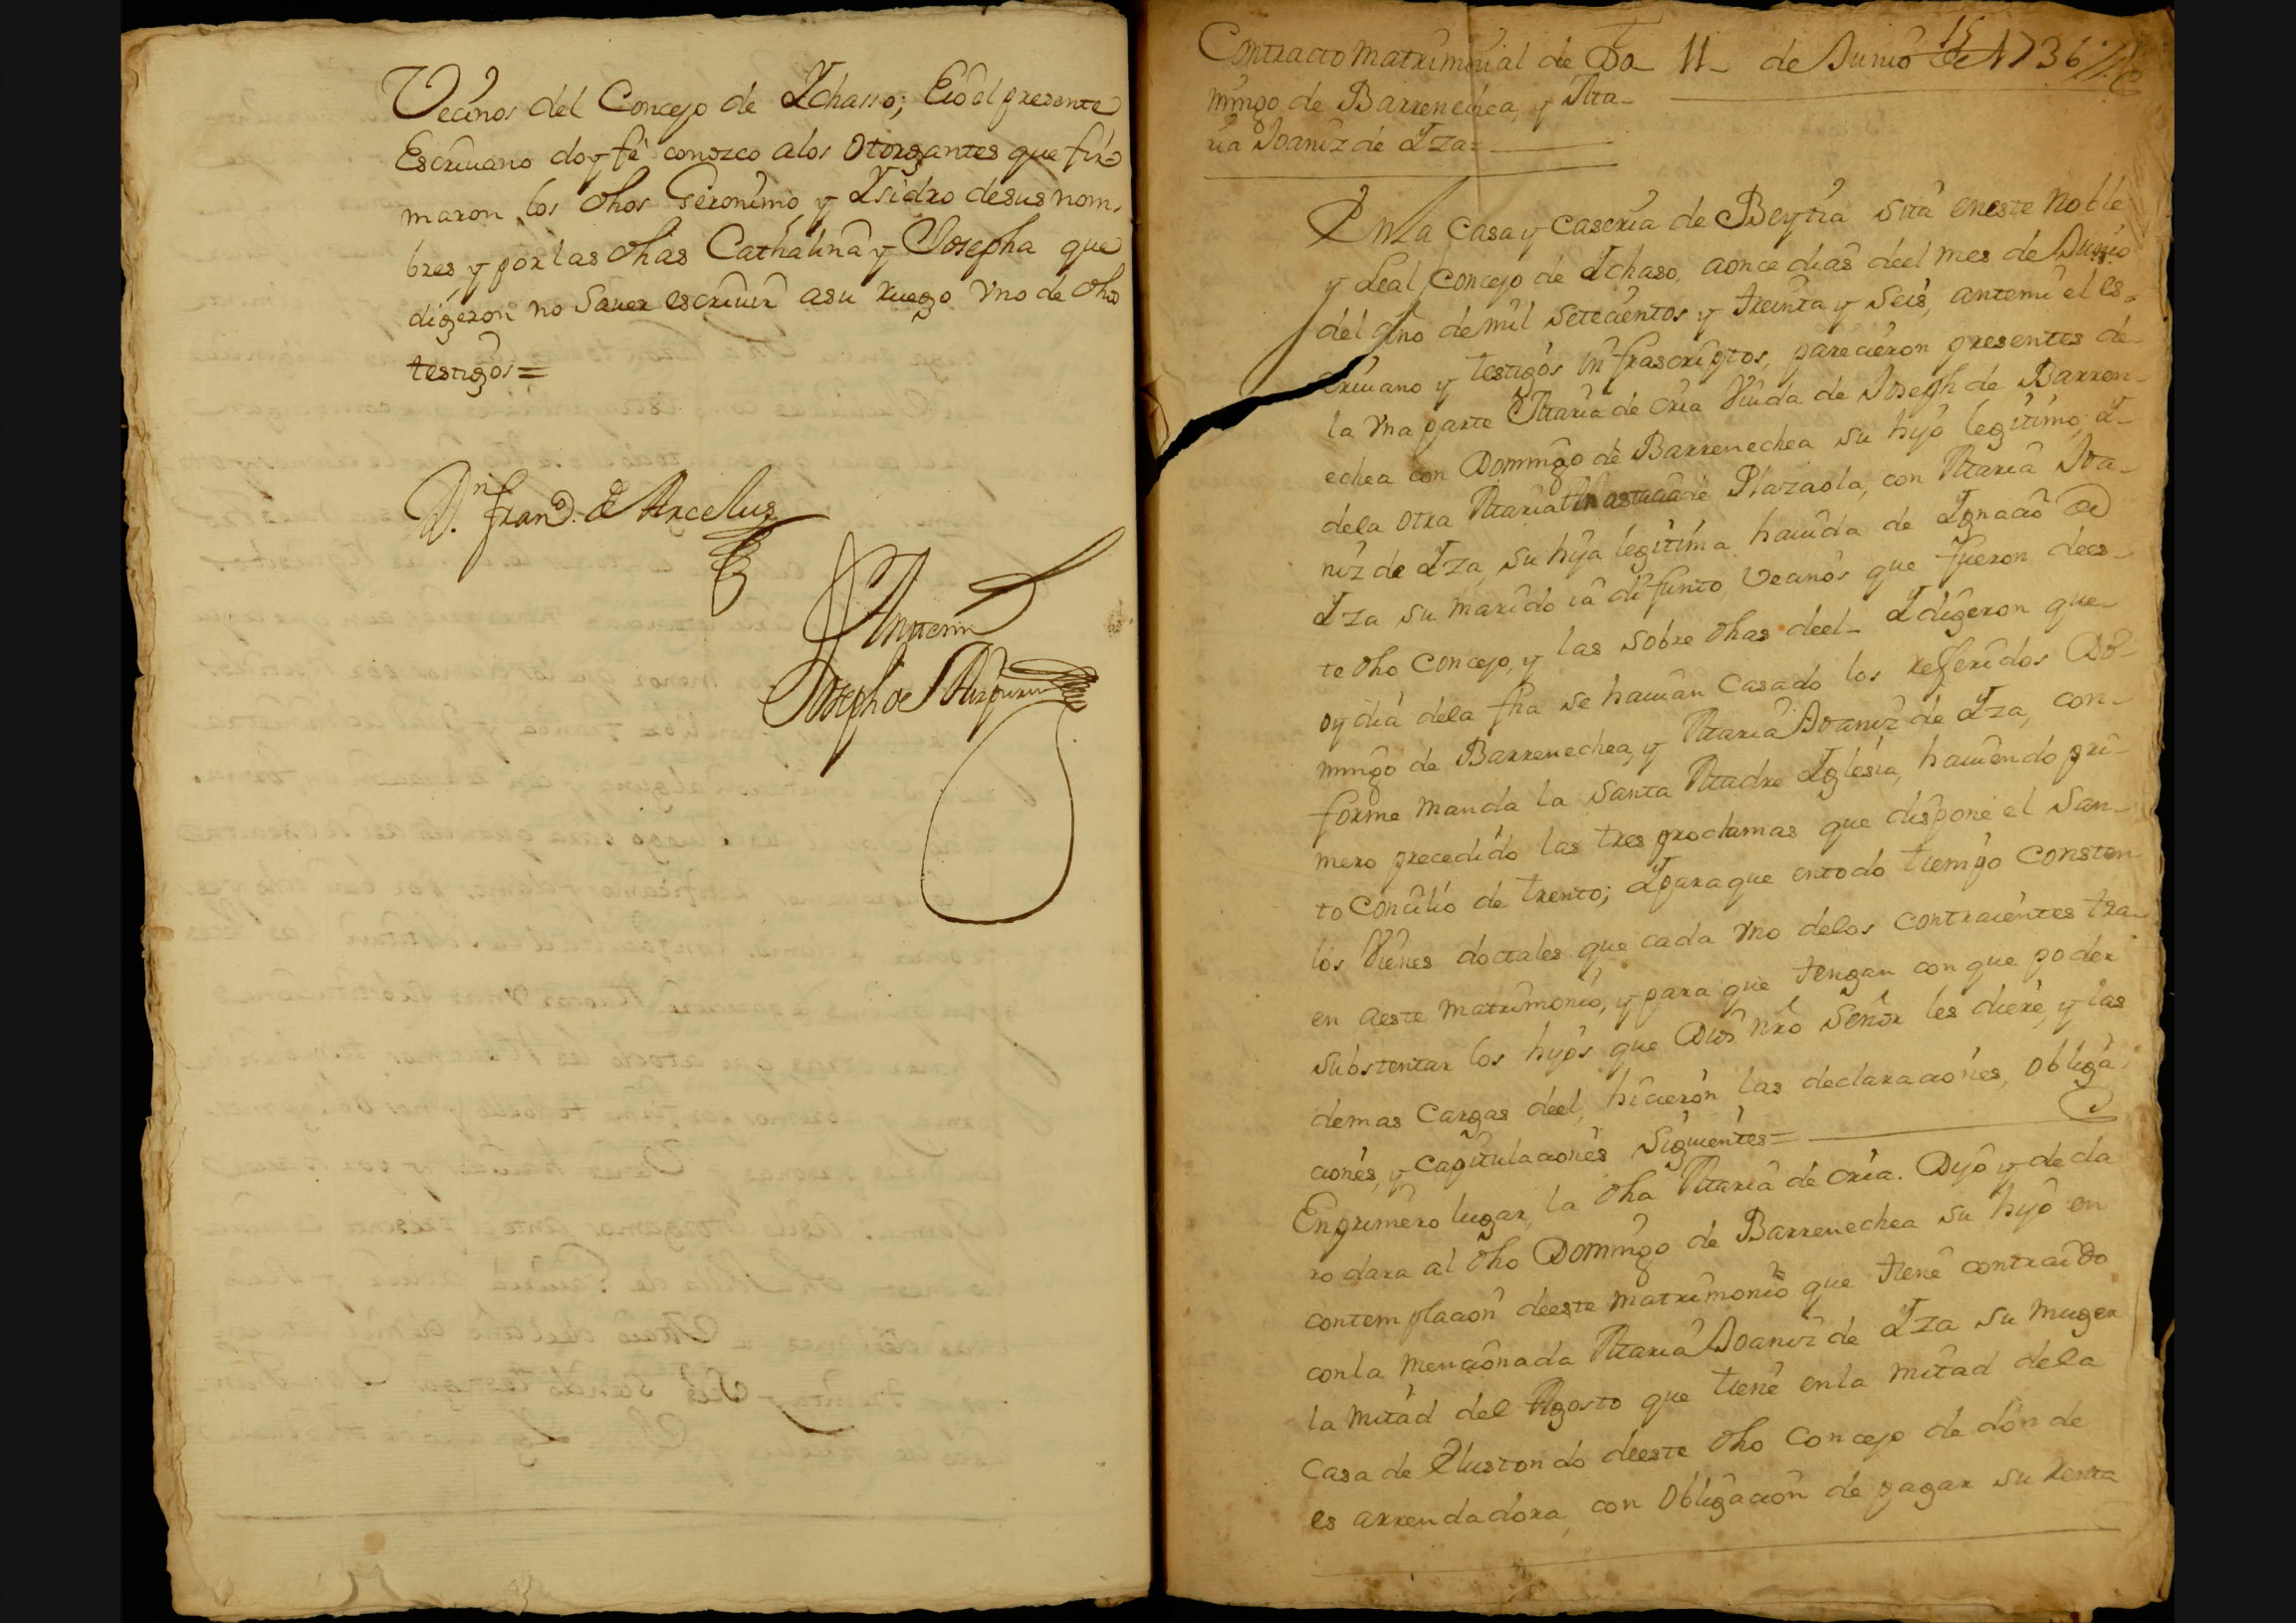 Vecinos del Concejo de Ychasso; E io el presente
Escriuano doy fè conozco a los Otorgantes que fir=
maron los dhos Geronimo, y Ysidro de sus nom-
bres, y por las dhas Cathalina y Josepha que
digeron no Sauer escriuir a su ruego vno de dhos
testigos=
Dn. Frano. de Arcelus
Antemi
Joseph de
Contracto matrimonial de Do-
mingo de Barrenechea, y Ma-
ria Joaniz de Yza=
11- de Junio de 1736
15
En la Casa y Caseria de Beytia sita en este Noble
y Leal Concejo de Ychaso, a once dias deel mes de Junio
del año de mil setecientos y treinta y seis, antemi el es-
criuano y testigos infrascriptos, parecieron presentes de
la vna parte Maria de Oria Viuda de Joseph de Barren-
echea con Domingo de Barrenechea su hijo legitimo; y-
de la otra Maria Anastasia de Plazaola, con Maria Joa-
niz de Yza, su hija legitima hauida de Ygnacio de
Yza su marido ia difunto, Vecinos que fueron de es-
te dho Concejo, y las sobre dhas deel- Y digeron que-
oy dia de la fha se hauian Casado los referidos Do-
mingo de Barrenechea, y Maria Joaniz de Yza, con-
forme manda la Santa Madre Yglesia, hauiendo pri-
mero precedido las tres proclamas que dispone el San-
to Concilio de trento; Y para que en todo tiempo Consten
los Vienes doctales que cada vno de los contraientes tra-
en a este matrimonio, y para que tengan con que poder
substentar los hijos que Dios nro Señor les diere, y las
demas Cargas deel, hicieron las declaraciones, obliga-
ciones, y capitulaciones siguientes=
En primero lugar, la dha Maria de Oria. Dijo y decla
ro dara al dho Domingo de Barrenechea su hijo en
contemplacion de este matrimonio que tiene contraido
con la mencionada Maria Joaniz de Yza su muger
la mitad del Agosto que tiene en la mitad de la
Casa de Elustondo de este dho Concejo de donde
es arrendadora, con obligacion de pagar su renta